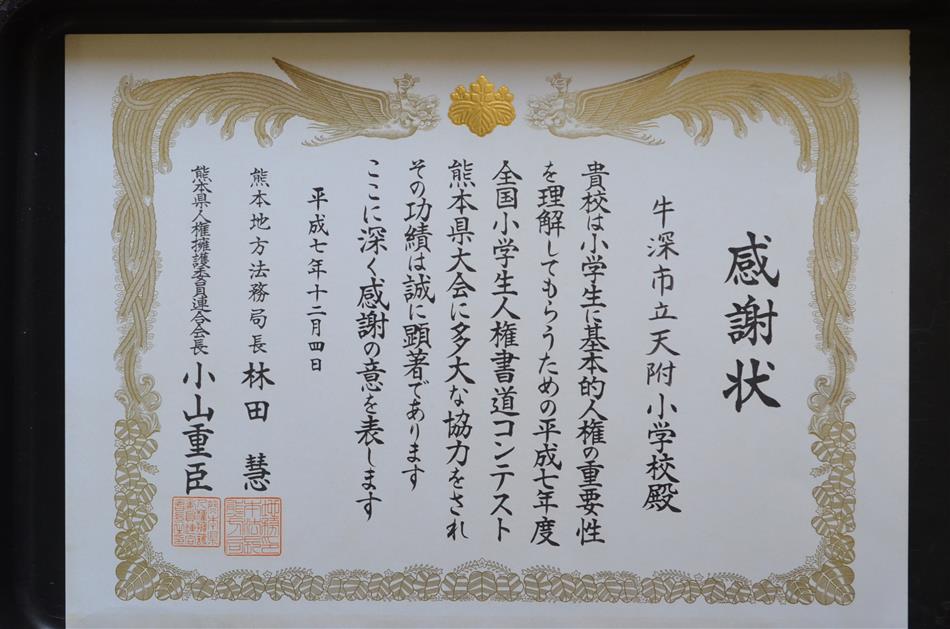 感謝状
牛深市立天附小学校殿
貴校は小学生に基本的人権の重要性
を理解してもらうための平成七年度
全国小学生人権書道コンテスト
熊本県大会に多大な協力をされ
その功績は誠に顕著であります
ここに深く感謝の意を表します
平成七年十二月四日
熊本地方法務局長 林田 慧
熊本県人権擁護委員連合会長 小山重臣